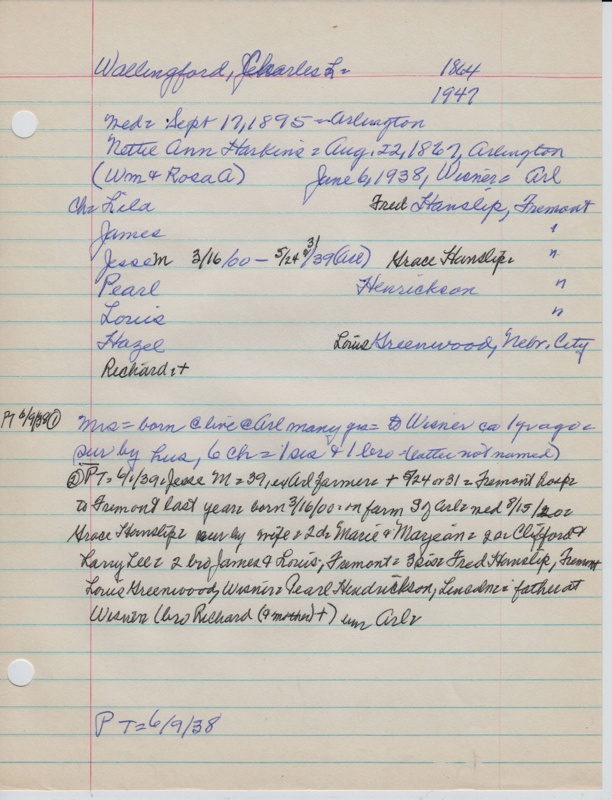 Wallingford, Charles L= 1864
1947
Med= Sept 17, 1895 = Arlington
Nettie Ann Harkins = Aug. 22, 1867, Arlington
(Wm & Rosa A) June 6, 1938, Wisner = Arl
Ch= Lila Fred Hanslip, Fremont
James "
Jesse M 3/16/00 - 5/24 or 31/39 (Arl) Grace Hanslip= "
Pearl Henrickson "
Louis "
Hazel Louis Greenwood, Nebr. City
Richard = +
PT 6/9/38 ① Mrs = born & live @ Arl many yrs = to Wisner ca 1 yr ago =
sur by hus, 6 ch = 1 sis & 1 bro (latter not named)
② PT = 6/1/39 = Jesse M = 39, ex Arl farmer = + 5/24 or 31 = Fremont hosp =
to Fremont last year = born 3/16/00 = on farm S of Arl = med 8/15/20 =
Grace Hanslip = sur by wife = 2 d= Marie & Maryean = 2 s= Clifford &
Larry Lee = 2 bro James & Louis, Fremont = 3 sis = Fred Hanslip, Fremont
Louis Greenwood, Wisner = Pearl Hendrickson, Lincoln = father at
Wisner (bro Richard (& mother) +) Arl=
PT = 6/9/38